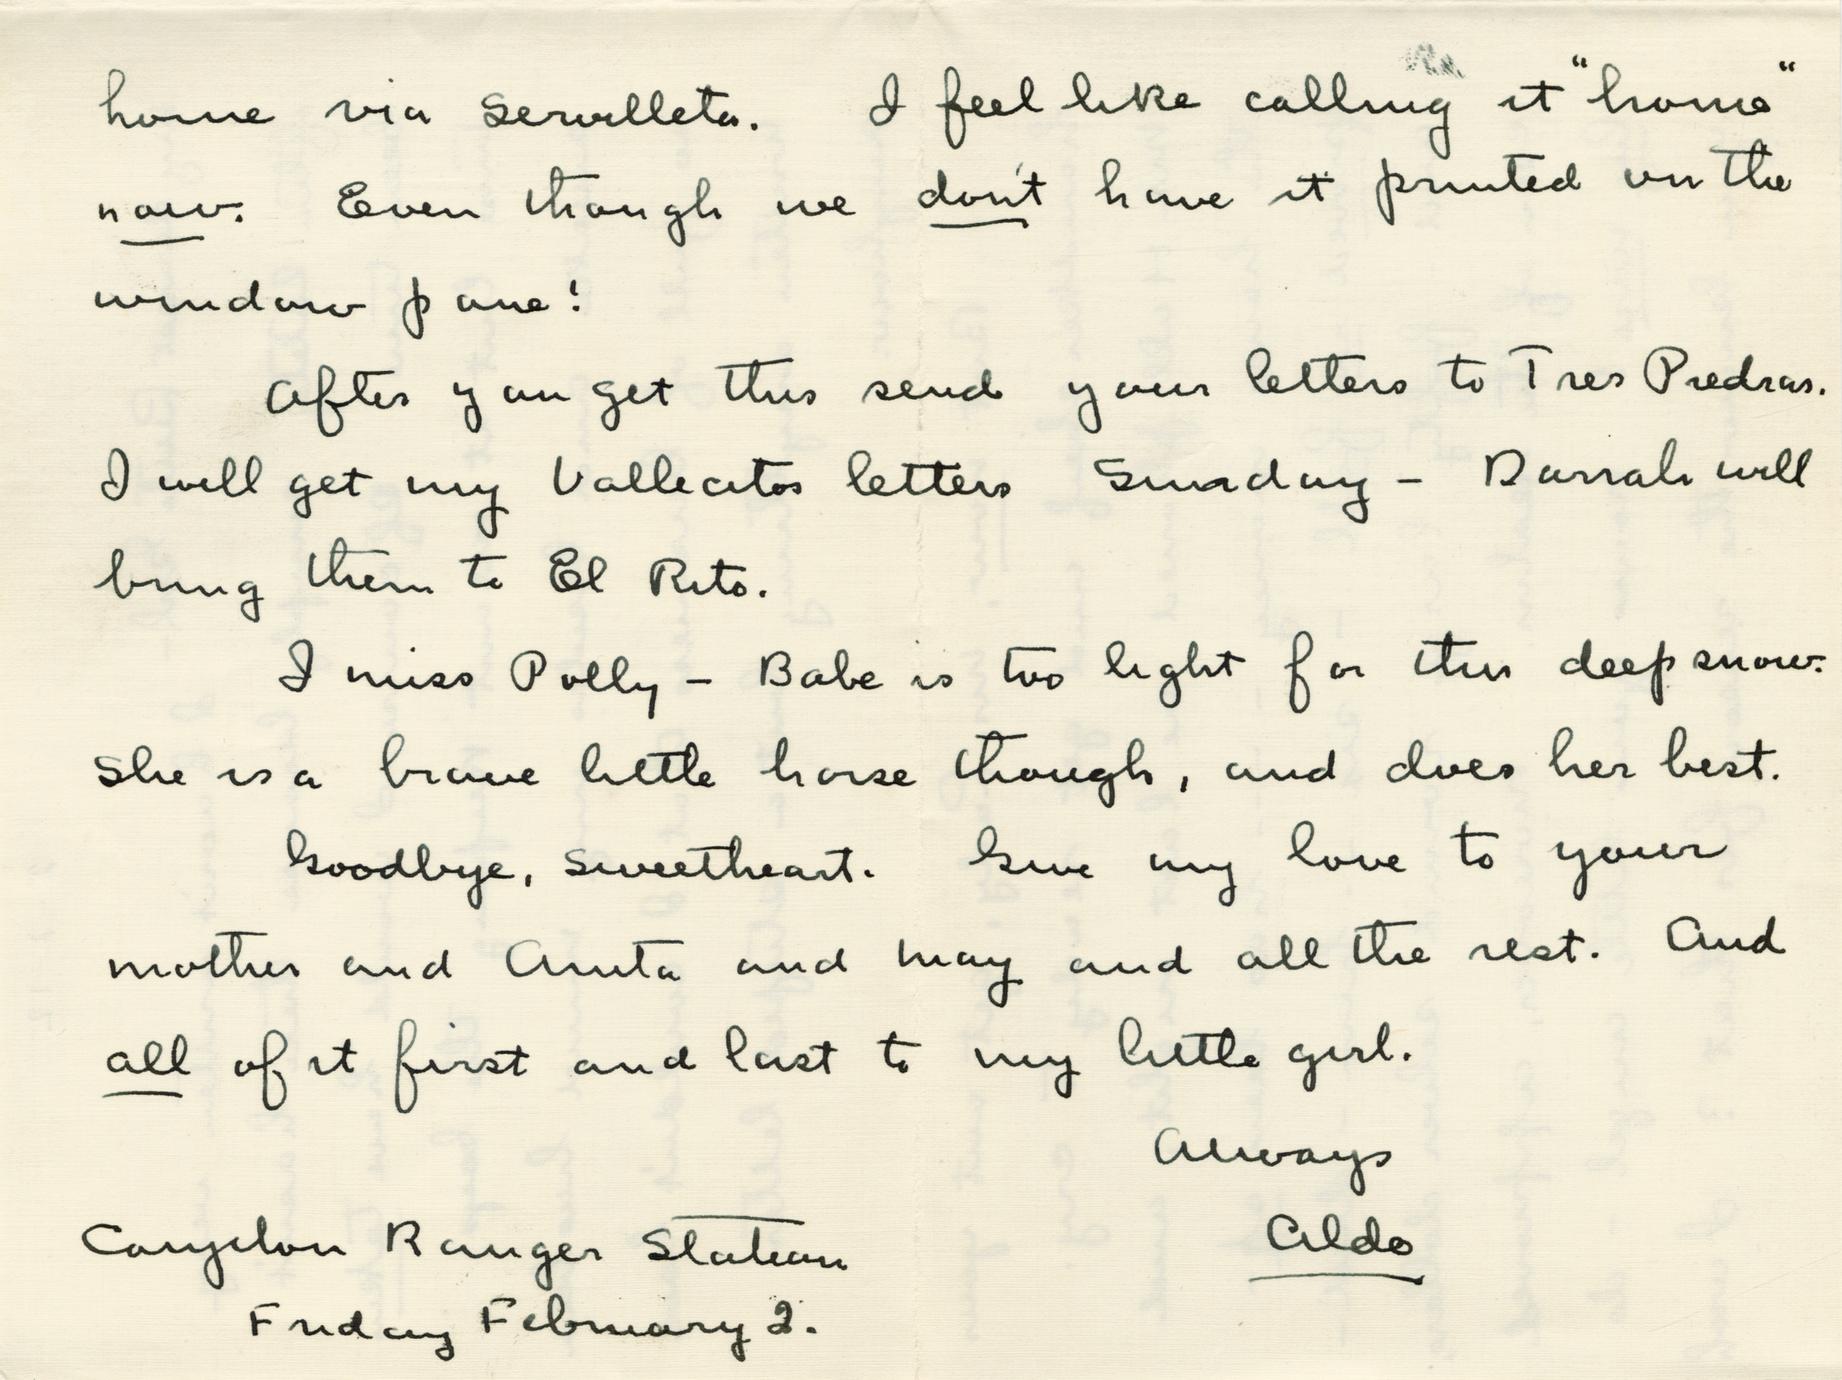 home via Servilleta. I feel like calling it "home"
now. Even though we don't have it printed on the
window pane!
After you get this send your letters to Tres Piedras.
I will get my Vallecitos letters Sunday – Darrah will
bring them to El Rito.
I miss Polly – Babe is too light for this deep snow.
She is a brave little horse though, and does her best.
Goodbye, sweetheart. Give my love to your
mother and Anita and May and all the rest. And
all of it first and last to my little girl.
Always
Aldo
Ranger Station
Friday February 2.